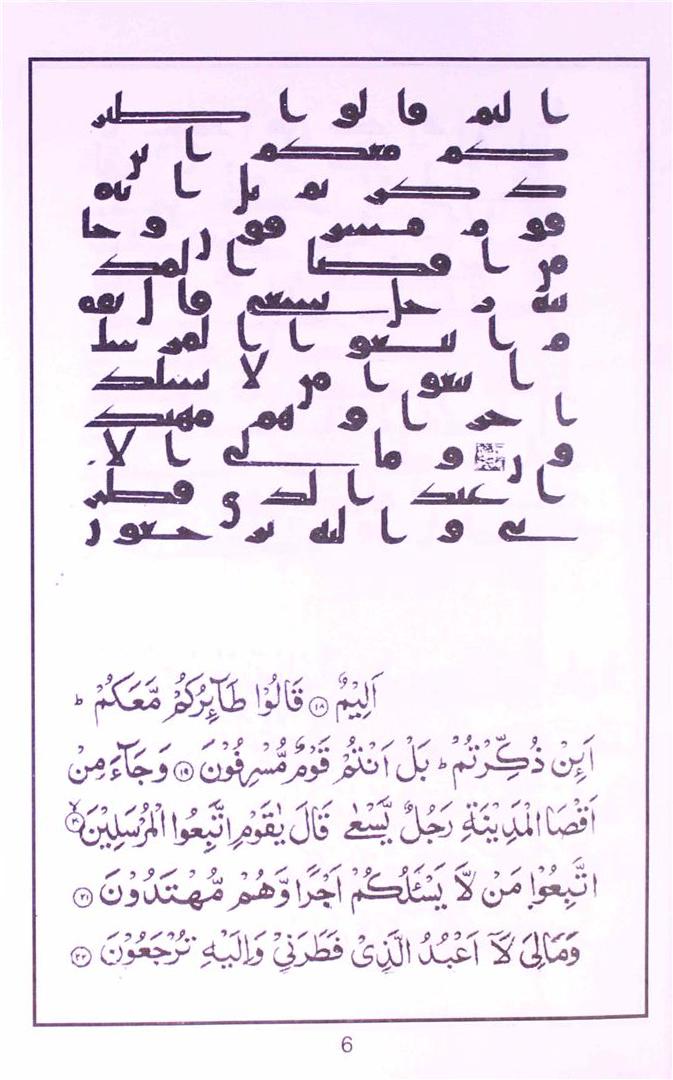 ا ليم قا لو ا طير
كم معكم ا ين
ذ كر تم بل ا نتم
قو م مسر فو ن و جا
من ا قصا ا لمد
ينه ر جل يسعى قا ل يقو
م ا تبعو ا ا لمر سلين
ا تبعو ا من لا يسلكم
ا جر ا و هم مهتد
و ن و ما لي ا لا
ا عبد ا لذ ي فطر
ني و ا ليه تر جعو ن
اَلِيْمٌ ۝۱۸ قَالُوْا طَآئِرُكُمْ مَّعَكُمْ ؕ
اَئِنْ ذُكِّرْتُمْ ؕ بَلْ اَنْتُمْ قَوْمٌ مُّسْرِفُوْنَ ۝۱۹ وَجَآءَ مِنْ
اَقْصَا الْمَدِيْنَةِ رَجُلٌ يَّسْعٰى قَالَ يٰقَوْمِ اتَّبِعُوا الْمُرْسَلِيْنَ ۝۲۰ۙ
اتَّبِعُوْا مَنْ لَّا يَسْـَٔلُكُمْ اَجْرًا وَّهُمْ مُّهْتَدُوْنَ ۝۲۱
وَمَا لِیَ لَآ اَعْبُدُ الَّذِیْ فَطَرَنِیْ وَاِلَيْهِ تُرْجَعُوْنَ ۝۲۲
6